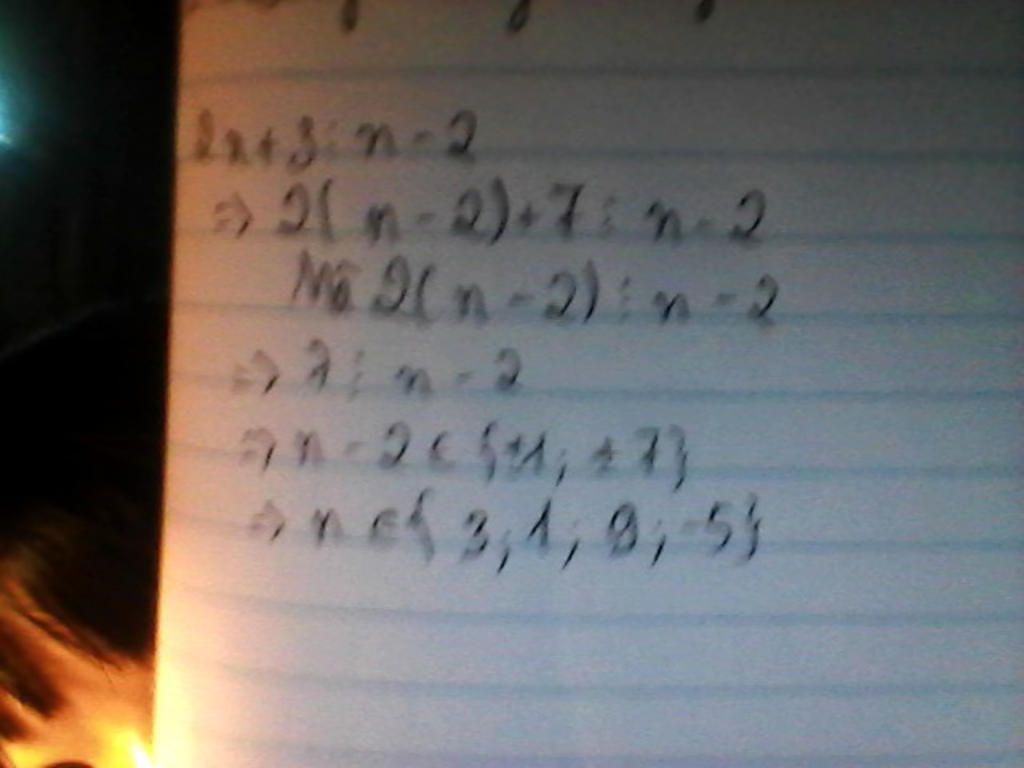 2n+3⋮n-2
⇒ 2(n-2)+7⋮n-2
Mà 2(n-2)⋮n-2
⇒ 7⋮n-2
⇒ n-2∈{±1; ±7}
⇒ n∈{3;1;9;-5}